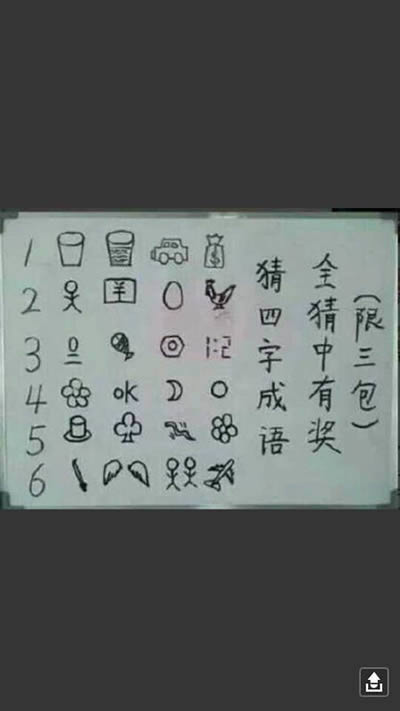 1 $
2 ¥
3 1:2
4 OK
5
6
猜四字成语
全猜中有奖
(限三包)